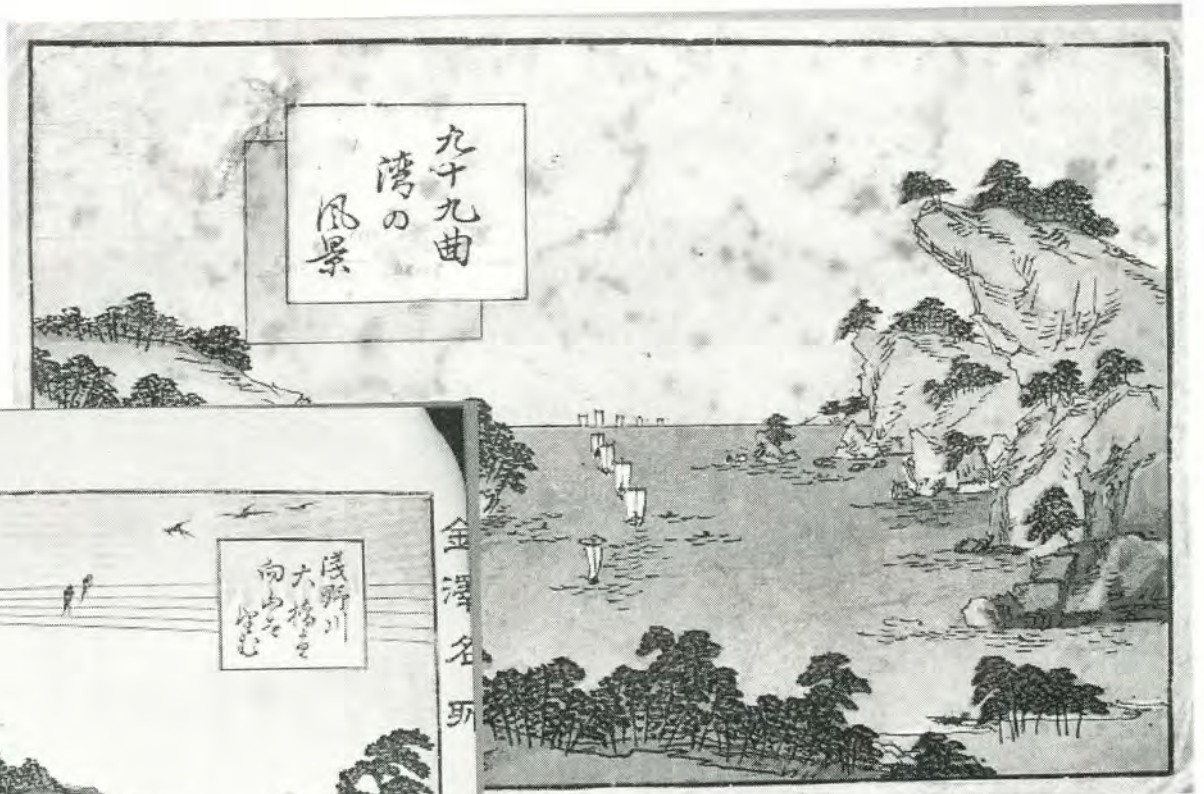 九十九曲
湾の
風景
金澤名所
浅野川
大橋より
向山を
望む